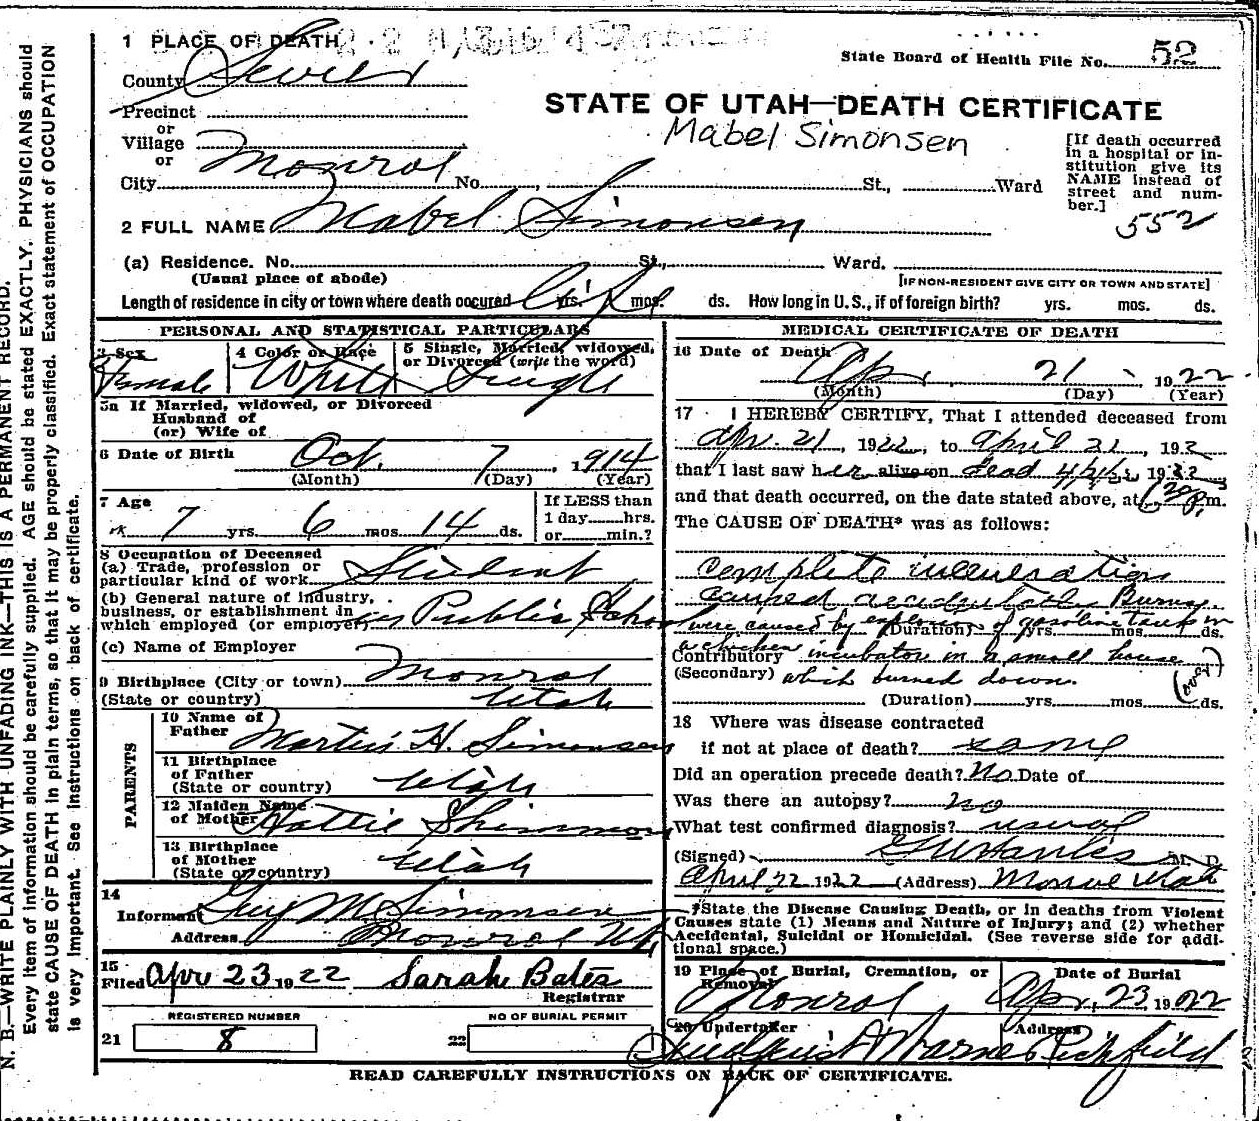 1 PLACE OF DEATH
State Board of Health File No. 52
County Sevier
STATE OF UTAH—DEATH CERTIFICATE
Mabel Simonsen
Precinct
or
Village
or
City Monroe No. , St., Ward
[If death occurred
in a hospital or in-
stitution give its
NAME instead of
street and num-
ber.]
552
2 FULL NAME Mabel Simonsen
(a) Residence. No. St., Ward.
(Usual place of abode)
[IF NON-RESIDENT GIVE CITY OR TOWN AND STATE]
Length of residence in city or town where death occured life yrs. mos. ds. How long in U. S., if of foreign birth? yrs. mos. ds.
PERSONAL AND STATISTICAL PARTICULARS
3 Sex
Female
4 Color or Race
White
5 Single, Married, widowed,
or Divorced (write the word)
Single
5a If Married, widowed, or Divorced
Husband of
(or) Wife of
6 Date of Birth Oct. 7, 1914
(Month) (Day) (Year)
7 Age
7 yrs. 6 mos. 14 ds.
If LESS than
1 day hrs.
or min.?
8 Occupation of Deceased
(a) Trade, profession or
particular kind of work Student
(b) General nature of industry,
business, or establishment in
which employed (or employer) Public School
(c) Name of Employer
9 Birthplace (City or town) Monroe
(State or country) Utah
PARENTS
10 Name of
Father Martin H. Simonsen
11 Birthplace
of Father
(State or country) Utah
12 Maiden Name
of Mother Hattie
13 Birthplace
of Mother
(State or country) Utah
14
Informant Guy M Simonsen
Address Monroe Ut
15
Filed Apr 23 1922 Sarah Bates
Registrar
REGISTERED NUMBER
21 8
NO OF BURIAL PERMIT
22
MEDICAL CERTIFICATE OF DEATH
16 Date of Death Apr. 21, 1922
(Month) (Day) (Year)
17 I HEREBY CERTIFY, That I attended deceased from
Apr. 21, 1922, to April 21, 192
that I last saw her alive on dead 1922
and that death occurred, on the date stated above, at m.
The CAUSE OF DEATH* was as follows:
complete incineration
caused accidentally Burns
were caused by explosion of gasoline tank in
(Duration) yrs. mos. ds.
a chicken incubator in a small house
Contributory
(Secondary) which burned down. (over)
(Duration) yrs. mos. ds.
18 Where was disease contracted
if not at place of death? same
Did an operation precede death? No Date of
Was there an autopsy? no
What test confirmed diagnosis? usual
(Signed) M. D.
April 22 1922 (Address) Monroe Utah
*State the Disease Causing Death, or in deaths from Violent
Causes state (1) Means and Nature of Injury; and (2) whether
Accidental, Suicidal or Homicidal. (See reverse side for addi-
tional space.)
19 Place of Burial, Cremation, or
Removal
Monroe
Date of Burial
Apr. 23, 1922
20 Undertaker
Address
Richfield
READ CAREFULLY INSTRUCTIONS ON BACK OF CERTIFICATE.
N. B.—WRITE PLAINLY WITH UNFADING INK—THIS IS A PERMANENT RECORD.
Every item of information should be carefully supplied. AGE should be stated EXACTLY. PHYSICIANS should
state CAUSE OF DEATH in plain terms, so that it may be properly classified. Exact statement of OCCUPATION
is very important. See instructions on back of certificate.